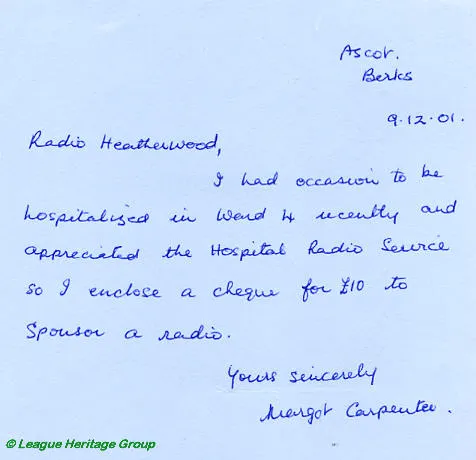 Ascot.
Berks
9.12.01.
Radio Heatherwood,
I had occasion to be
hospitalized in Ward 4 recently and
appreciated the Hospital Radio Service
so I enclose a cheque for £10 to
Sponsor a radio.
Yours sincerely
Margot Carpenter.
© League Heritage Group